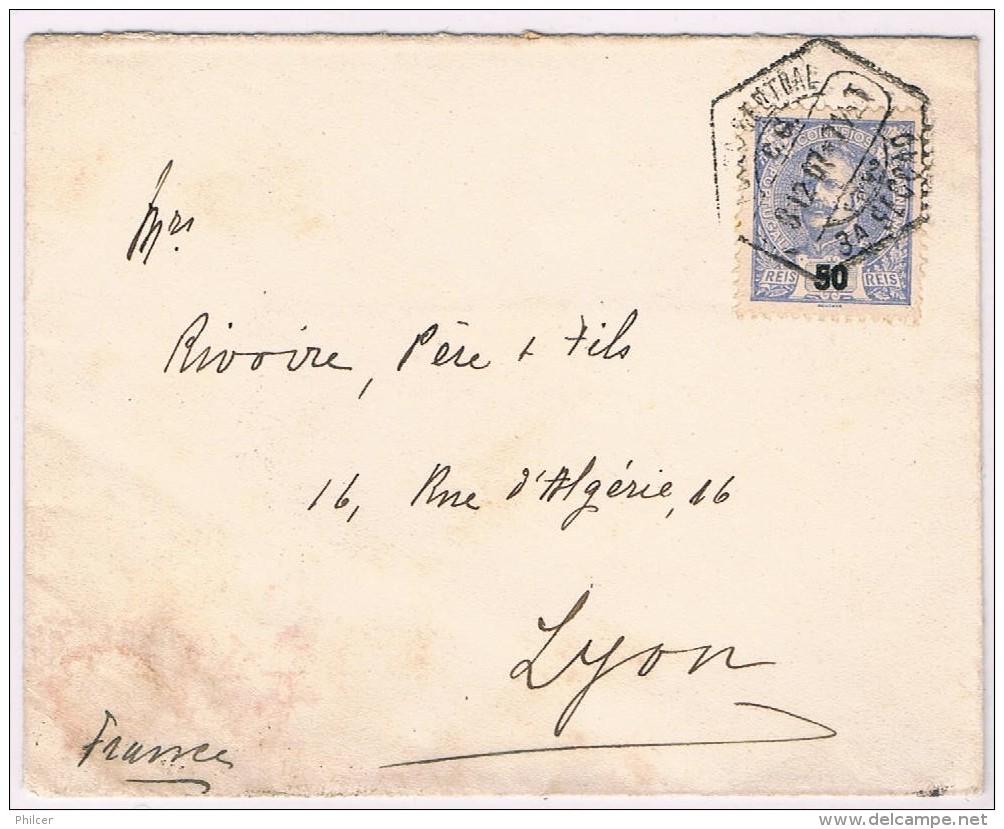 CENTRAL
3A SECÇÃO
CORREIOS
REIS 50 REIS
Mrs
Rivoire, Père & Fils
16, Rue d'Algérie, 16
Lyon
France
Philcer
www.delcampe.net